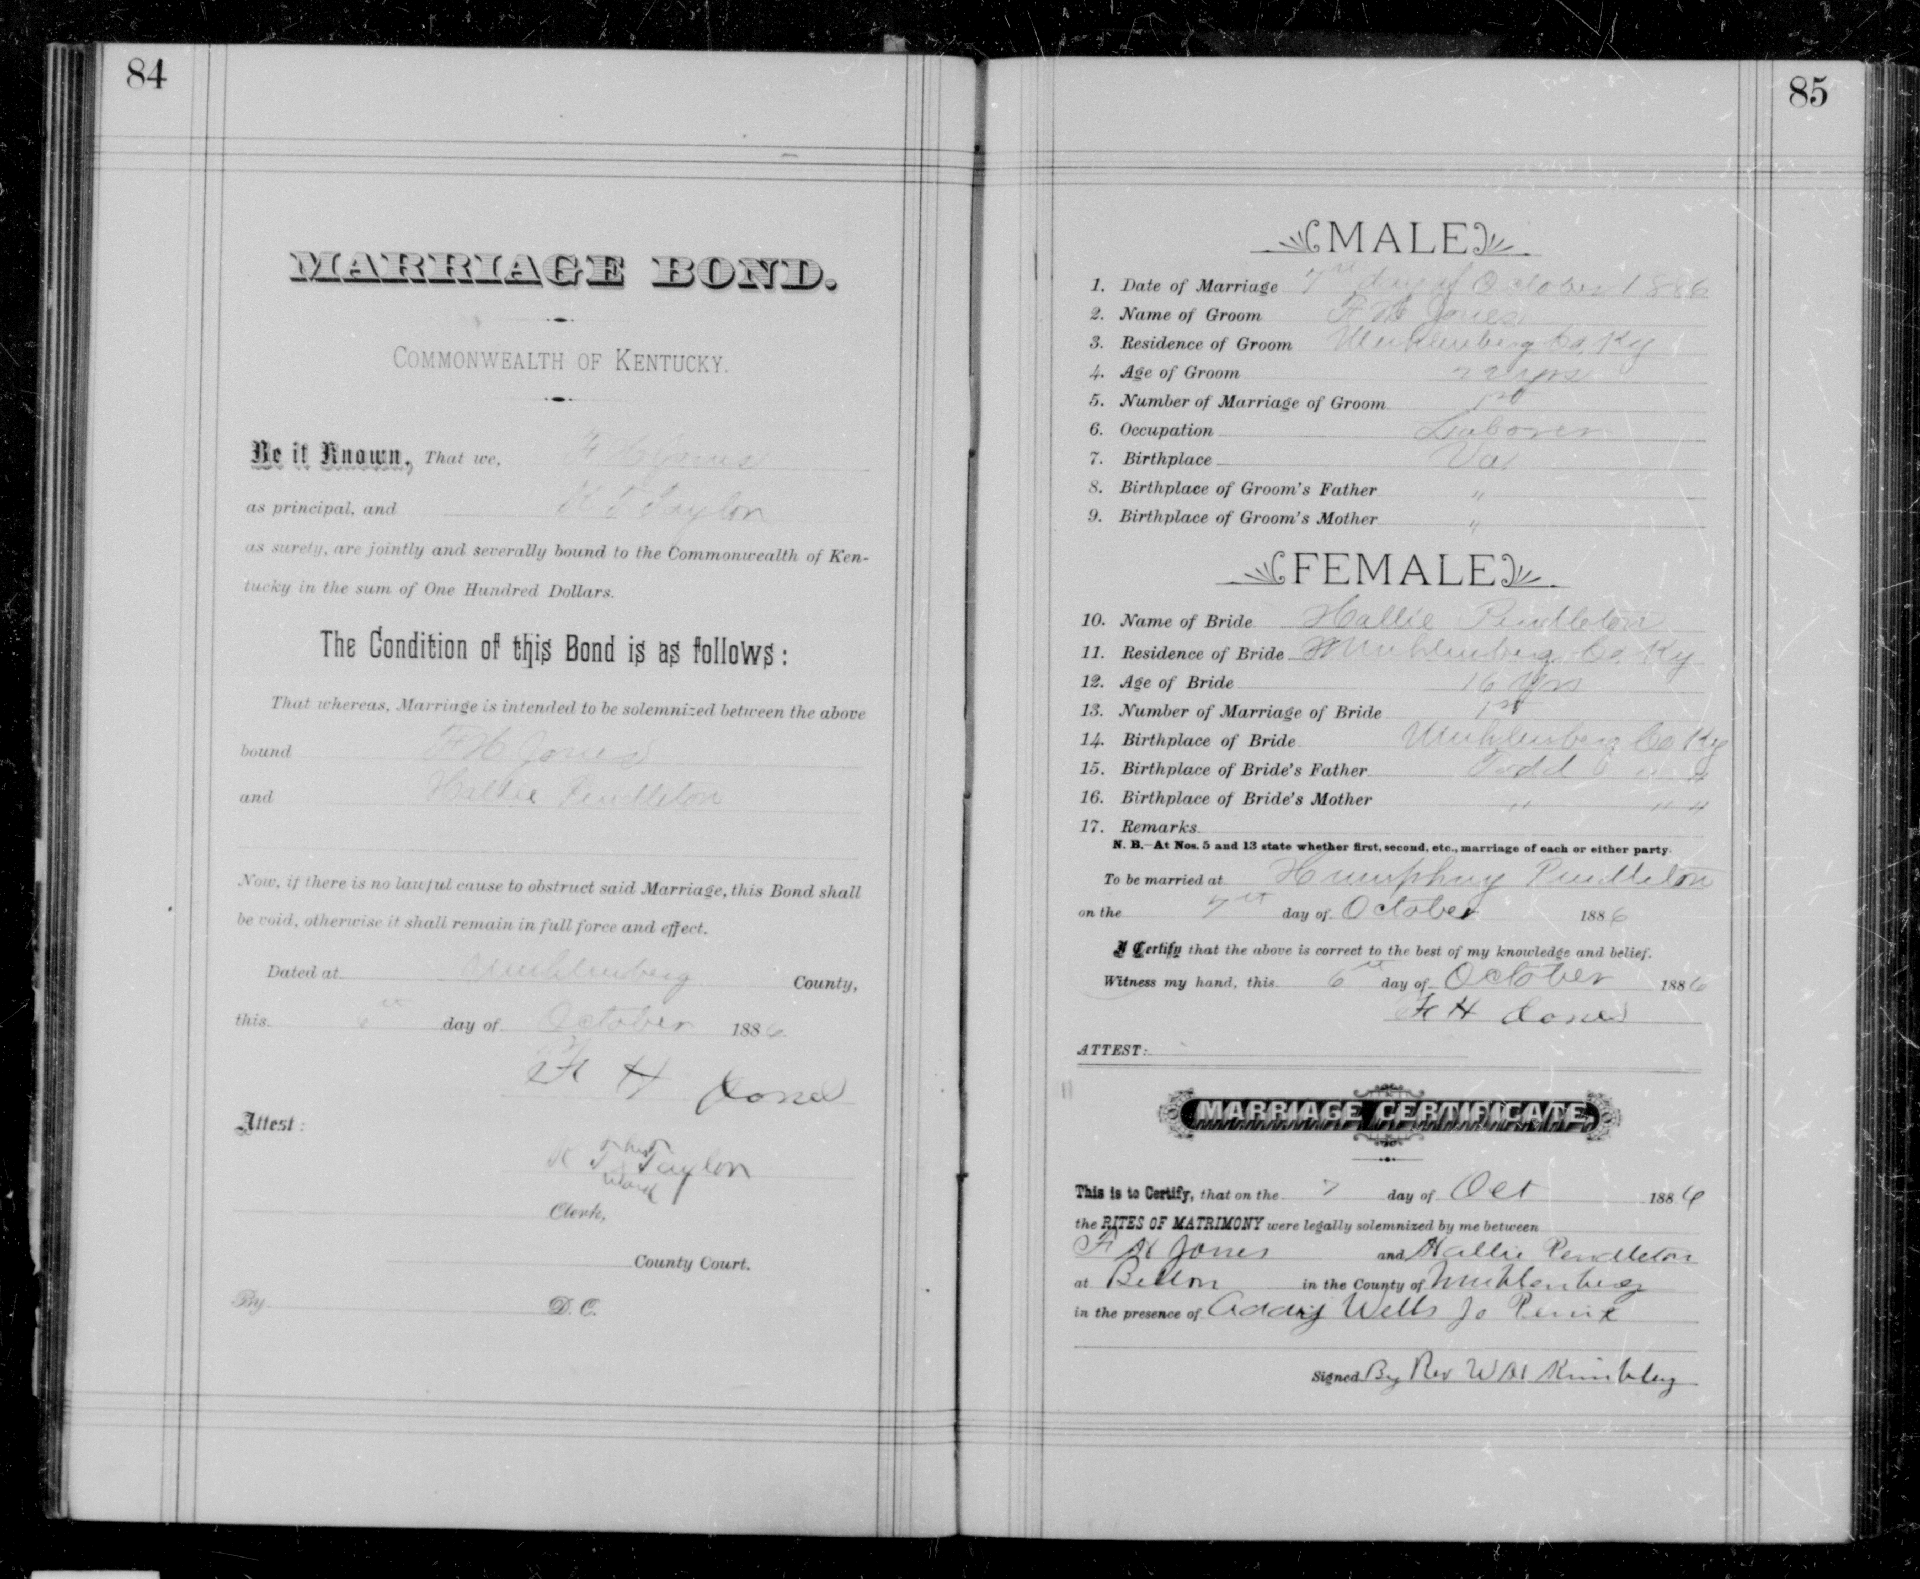 84
MARRIAGE BOND.
COMMONWEALTH OF KENTUCKY.
Be it Known, That we, F H Jones
as principal, and K T Taylor
as surety, are jointly and severally bound to the Commonwealth of Ken-
tucky in the sum of One Hundred Dollars.
The Condition of this Bond is as follows:
That whereas, Marriage is intended to be solemnized between the above
bound F H Jones
and Hallie Pendleton
Now, if there is no lawful cause to obstruct said Marriage, this Bond shall
be void, otherwise it shall remain in full force and effect.
Dated at Muhlenberg County,
this 6th day of October 1886
F H Jones
Attest:
his
K T x Taylor
mark
Clerk,
County Court.
By D. C.
85
MALE
1. Date of Marriage 7th day of October 1886
2. Name of Groom F H Jones
3. Residence of Groom Muhlenberg Co Ky
4. Age of Groom 22 yrs
5. Number of Marriage of Groom 1st
6. Occupation Laborer
7. Birthplace Va
8. Birthplace of Groom's Father "
9. Birthplace of Groom's Mother "
FEMALE
10. Name of Bride Hallie Pendleton
11. Residence of Bride Muhlenberg Co Ky
12. Age of Bride 16 Yrs
13. Number of Marriage of Bride 1st
14. Birthplace of Bride Muhlenberg Co Ky
15. Birthplace of Bride's Father Todd " "
16. Birthplace of Bride's Mother " " "
17. Remarks
N. B.—At Nos. 5 and 13 state whether first, second, etc., marriage of each or either party.
To be married at Humphrey Pendleton
on the 7th day of October 1886
I Certify that the above is correct to the best of my knowledge and belief.
Witness my hand, this 6th day of October 1886
F H Jones
ATTEST:
MARRIAGE CERTIFICATE.
This is to Certify, that on the 7 day of Oct 1886
the RITES OF MATRIMONY were legally solemnized by me between
F H Jones and Hallie Pendleton
at Belton in the County of Muhlenberg
in the presence of Wells Jo Penix
Signed By Rev W H Kimbley